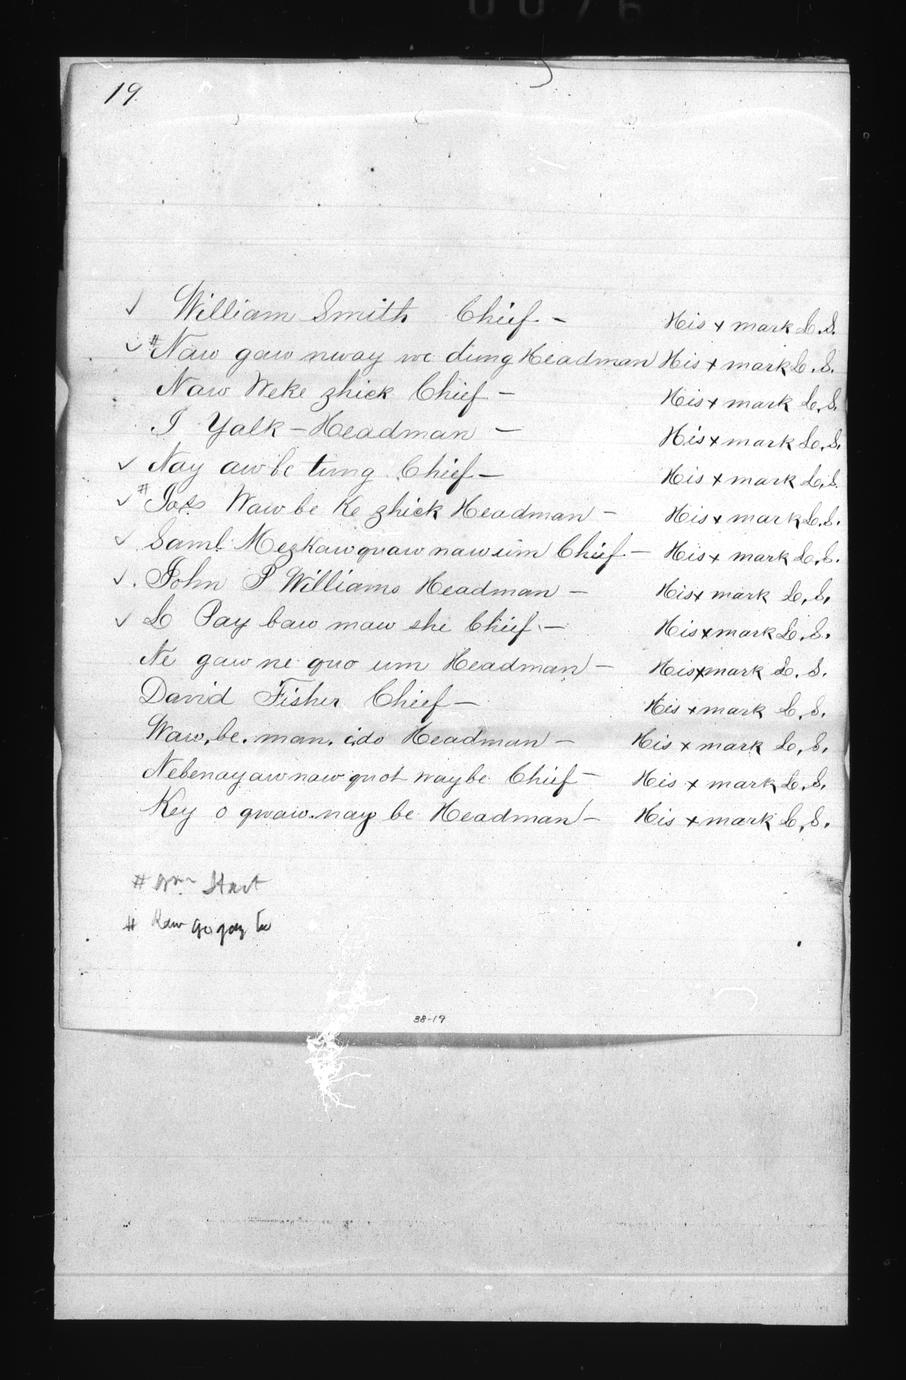 0076
19.
✓ William Smith Chief – His x mark L.S.
✓ #Naw gaw nway we dung Headman His x mark L.S.
Naw Weke zhick Chief – His x mark L.S.
I Yalk – Headman – His x mark L.S.
✓ Nay aw be tung Chief – His x mark L.S.
✓ #Jo Waw be Ke zhick Headman – His x mark L.S.
✓ Saml. Mezkawquawnawum Chief – His x mark L.S.
✓ John P Williams Headman – His x mark L.S.
✓ L Pay baw maw she Chief. – His x mark L.S.
Ne gaw ne quo um Headman – His x mark L.S.
David Fisher Chief – His x mark L.S.
Waw.be.man.ido Headman – His x mark L.S.
Nebenayawnawquot waybe Chief – His x mark L.S.
Key o qwaw.nay be Headman – His x mark L.S.
# Wm Start
# Kaw go
38-19